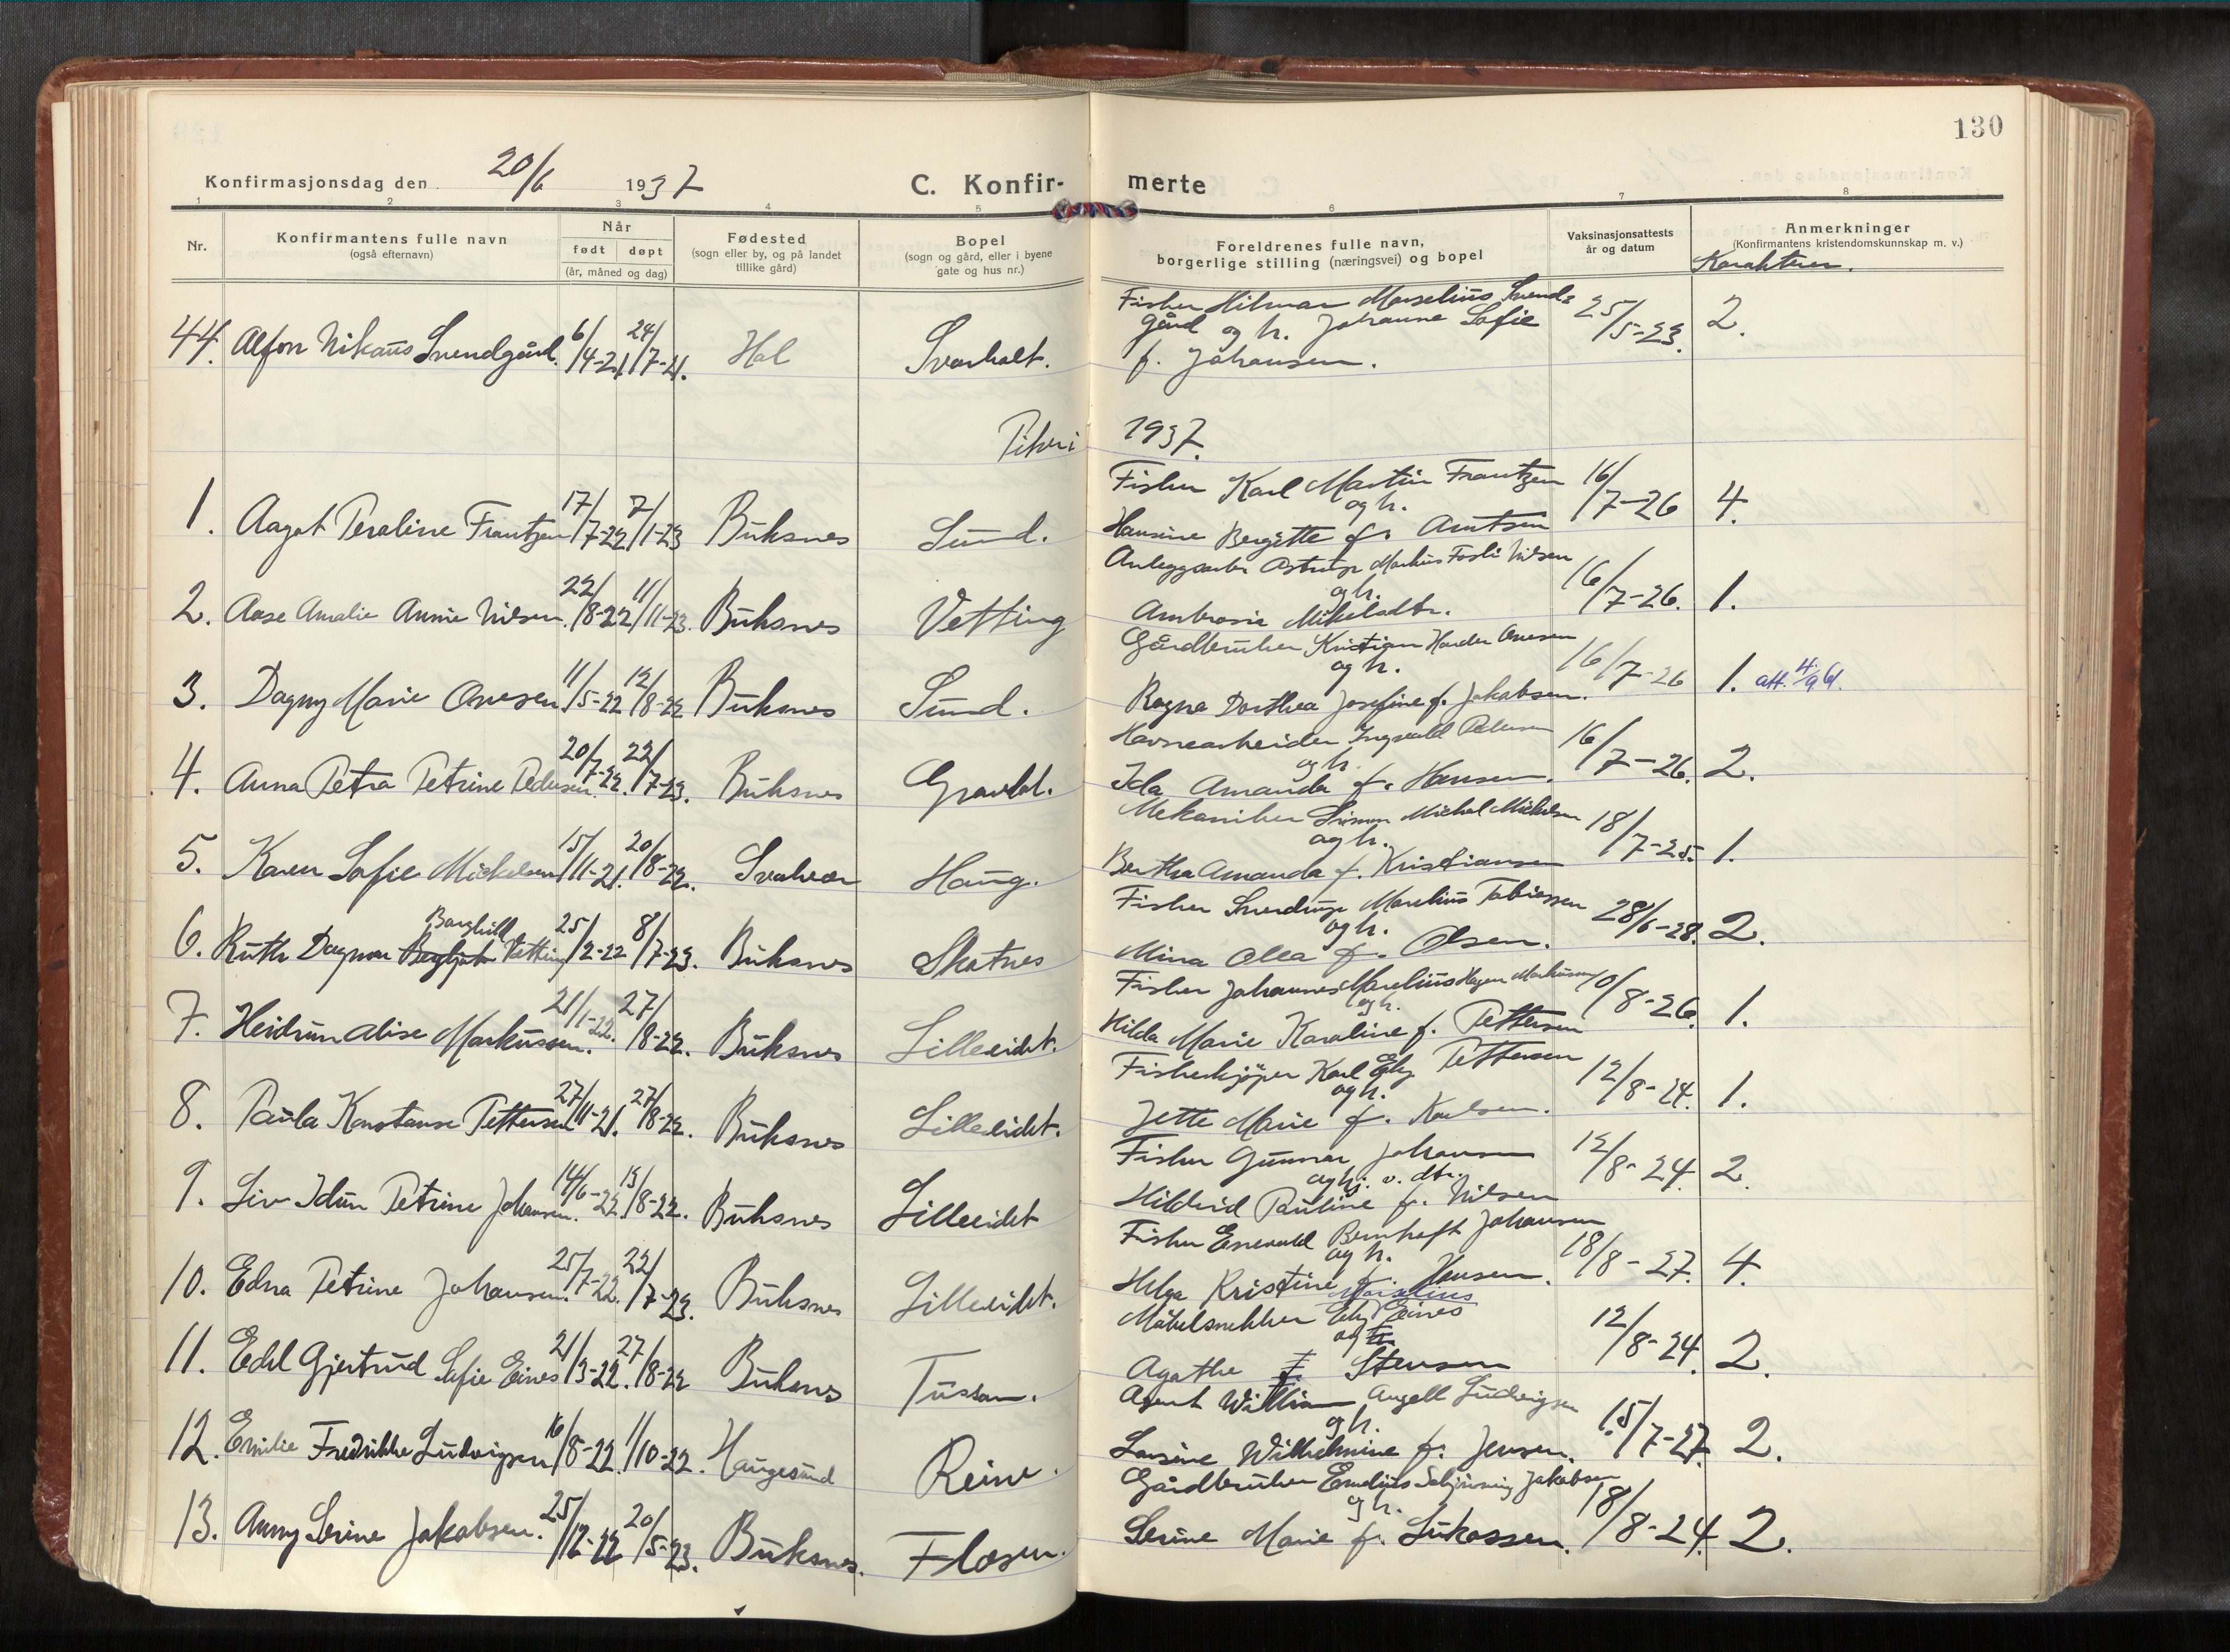 130
Konfirmasjonsdag den 20/6 1937 C. Konfir- merte
1 2 3 4 5 6 7 8
Nr.
Konfirmantens fulle navn
(også efternavn)
Når
født døpt
(år, måned og dag)
Fødested
(sogn eller by, og på landet
tillike gård)
Bopel
(sogn og gård, eller i byene
gate og hus nr.)
Foreldrenes fulle navn,
borgerlige stilling (næringsvei) og bopel
Vaksinasjonsattests
år og datum
Anmerkninger
(Konfirmantens kristendomskunnskap m. v.)
Karakterer.
44. Alfon Nikaus Svendgård. 6/4-21. 24/7-21. Hol Svarholt. Fisker Hilmar Marselius Svend= 25/5-23. 2.
gård og h. Johanne Sofie
f. Johansen.
Piker i 1937.
1. Aagot Peraline Frantzen 17/7-22 7/1-23 Buksnes Sund. Fisker Karl Martin Frantzen 16/7-26 4.
og h.
Hansine Bergitte f. Arntsen
2. Aase Amalie Annie Nilsen. 22/8-22 11/11-23. Buksnes Vetting Anleggsarb. Astrup Markus Fosli Nilsen 16/7-26. 1.
og h.
Ambrosie Mikelsdtr.
3. Dagny Marie Onesen 11/5-22 12/8-22 Buksnes Sund. Gårdbruker Kristian Harder Onesen 16/7-26 1. att. 4/9 61.
og h.
Ragna Dorthea Josefine f. Jakobsen.
4. Anna Petra Petrine Pedersen. 20/7-22. 22/7-23. Buksnes Gravdal. Havnearbeider Ingvald Pedersen 16/7-26. 2.
og h.
Ida Amanda f. Hansen.
5. Karen Sofie Mickelsen 15/11-21. 20/8-22. Svolvær Haug. Mekaniker Simon Michal Mickelsen 18/7-25. 1.
og h.
Bertha Amanda f. Kristiansen
6. Ruth Dagmar Bergljot Borghild Vetting 25/2-22 8/7-23. Buksnes Skotnes Fisker Sverdrup Marelius Tobiassen 28/6-28. 2.
og h.
Mina Olea f. Olsen.
7. Heidrun Alise Markussen. 21/1-22. 27/8-22. Buksnes Lilleeidet. Fisker Johannes Marelius Hagen Markussen 10/8-26. 1.
og h.
Hilda Marie Karaline f. Pettersen
8. Paula Konstanse Pettersen 27/11-21. 27/8-22. Buksnes Lilleeidet. Fiskekjøper Karl Edv. Pettersen 12/8-24. 1.
og h.
Jette Marie f. Karlsen.
9. Liv Idun Petrine Johansen. 14/6-22. 13/8-22. Buksnes Lilleeidet Fisker Gunnar Johansen 12/8-24. 2.
og h. v. dtr.
Hildrid Pauline f. Nilsen
10. Edna Petrine Johansen. 25/7-22. 22/7-23. Buksnes Lilleeidet. Fisker Enevald Bernhoft Johansen 18/8-27. 4.
og h.
Helga Kristine f. Hansen.
11. Edel Gjertrud Sofie Eines 21/3-22. 27/8-22 Buksnes Tussan. Møbelsnekker Edv. Marelius Eines 12/8-24. 2.
og h.
Agathe f. Stensen
12. Emilie Fredrikke Ludvigsen 16/8-22. 1/10-22. Haugesund Reine. Agent William Angell Ludvigsen 15/7-27. 2.
og h.
Lovine Wilhelmine f. Jensen.
13. Anny Serine Jakobsen. 25/12-22 20/5-23. Buksnes. Flosen. Gårdbruker Emelius Schjønning Jakobsen 18/8-24. 2.
og h.
Serine Marie f. Lukassen.